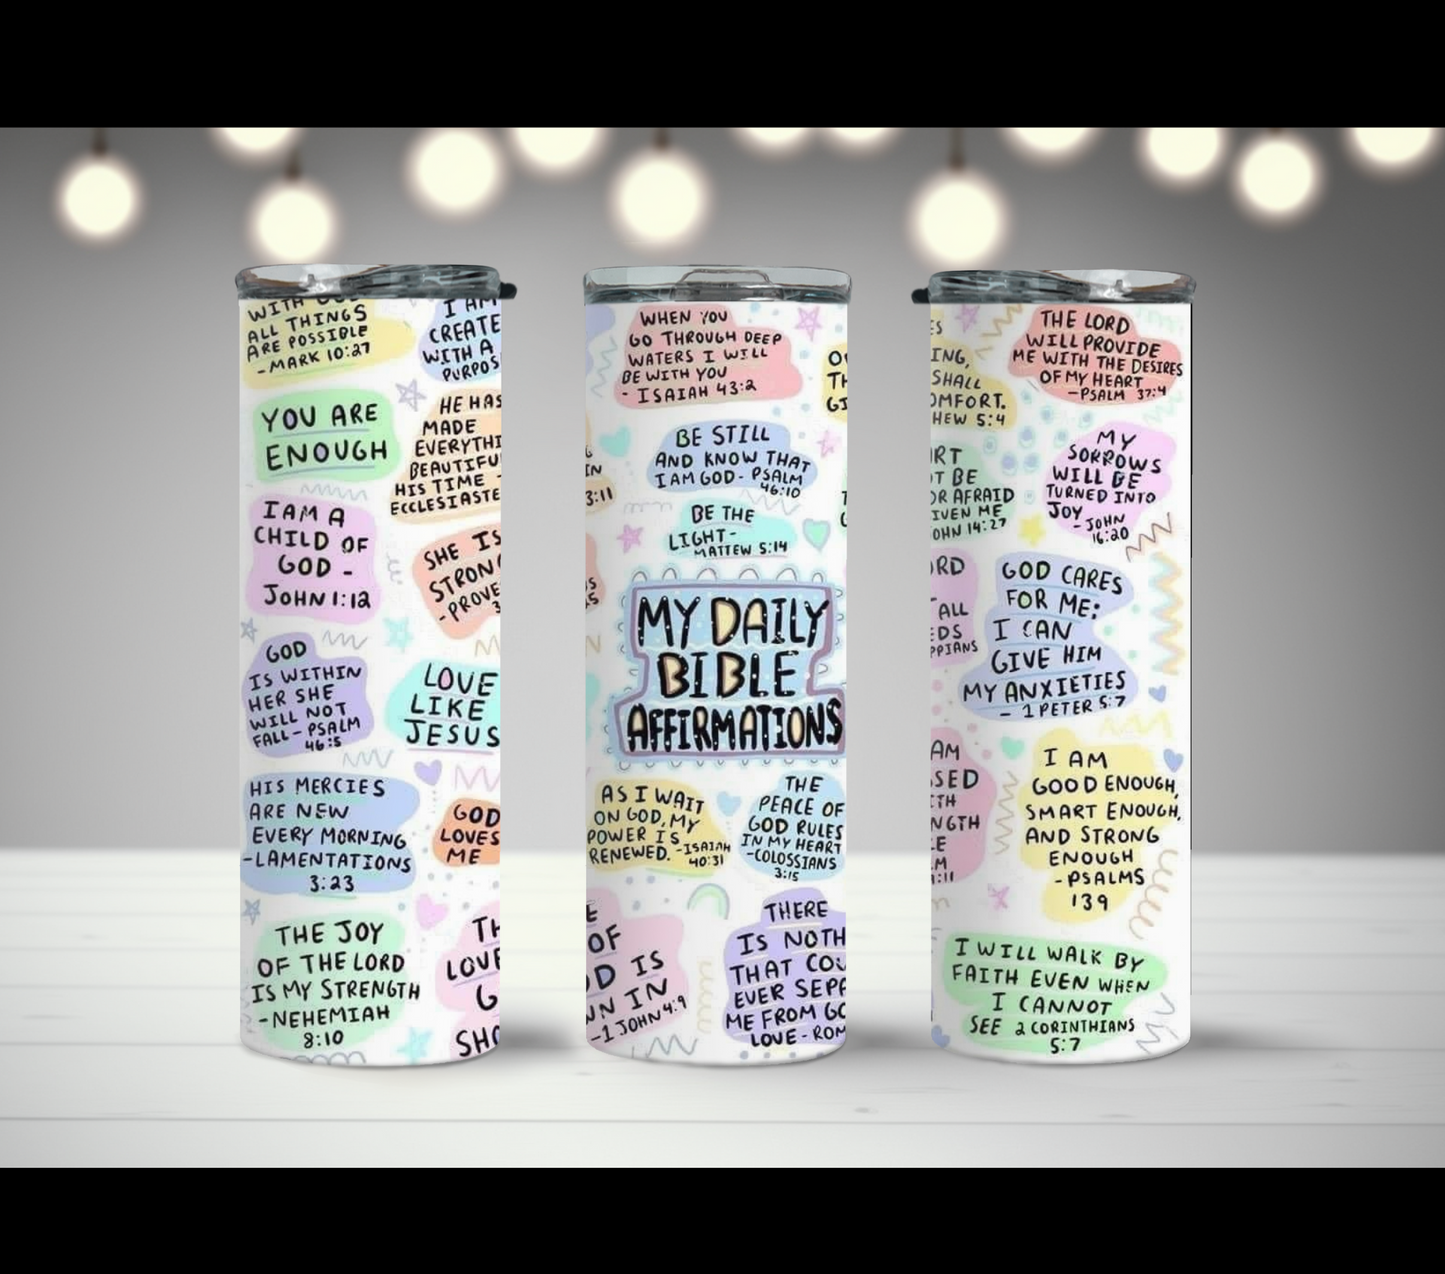 WITH GOD
ALL THINGS
ARE POSSIBLE
- MARK 10:27
I AM
CREATE
WITH A
PURPOS
YOU ARE
ENOUGH
HE HAS
MADE
EVERYTHI
BEAUTIFU
HIS TIME -
ECCLESIASTE
I AM A
CHILD OF
GOD -
JOHN 1:12
SHE IS
STRON
- PROVE
3
GOD
IS WITHIN
HER SHE
WILL NOT
FALL - PSALM
46:5
LOVE
LIKE
JESUS
HIS MERCIES
ARE NEW
EVERY MORNING
-LAMENTATIONS
3:23
GOD
LOVES
ME
THE JOY
OF THE LORD
IS MY STRENGTH
-NEHEMIAH
8:10
TH
LOVE
G
SHO
WHEN YOU
GO THROUGH DEEP
WATERS I WILL
BE WITH YOU
- ISAIAH 43:2
O
TH
GI
BE STILL
AND KNOW THAT
I AM GOD - PSALM
46:10
IN
3:11
BE THE
LIGHT -
MATTEW 5:14
S
5
MY DAILY
BIBLE
AFFIRMATIONS
AS I WAIT
ON GOD, MY
POWER IS
RENEWED. -ISAIAH
40:31
THE
PEACE OF
GOD RULES
IN MY HEART
-COLOSSIANS
3:15
E
OF
D IS
N IN
-1 JOHN 4:9
THERE
IS NOTH
THAT COU
EVER SEPA
ME FROM GO
LOVE - ROM
ES
ING,
SHALL
OMFORT.
HEW 5:4
THE LORD
WILL PROVIDE
ME WITH THE DESIRES
OF MY HEART
-PSALM 37:4
RT
T BE
OR AFRAID
IVEN ME
OHN 14:27
MY
SORROWS
WILL BE
TURNED INTO
JOY
- JOHN
16:20
ORD
ALL
EDS
PPIANS
GOD CARES
FOR ME;
I CAN
GIVE HIM
MY ANXIETIES
- 1 PETER 5:7
AM
SSED
ITH
NGTH
E
M
:11
I AM
GOOD ENOUGH,
SMART ENOUGH,
AND STRONG
ENOUGH
-PSALMS
139
I WILL WALK BY
FAITH EVEN WHEN
I CANNOT
SEE 2 CORINTHIANS
5:7